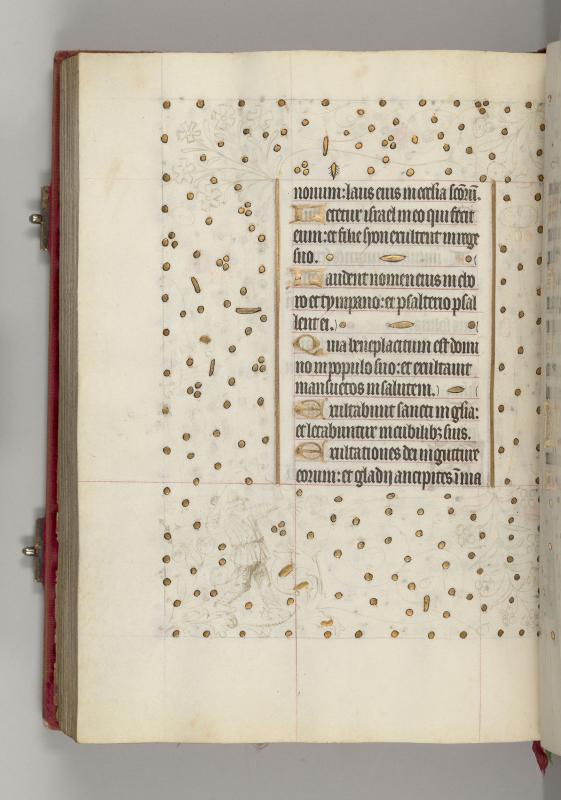 nouum: laus eius in ecclesia scorū.
Letetur israel in eo qui fecit
eum: et filie syon exultent in rege
suo.
Laudent nomen eius in cho
ro et tympano: et psalterio psal
lent ei.
Quia beneplacitum est domi
no in populo suo: et exaltauit
mansuetos in salutem.
Exultabunt sancti in glīa:
et letabuntur in cubilibꝫ suis.
Exultationes dei in gutture
eorum: et gladij ancipites ī ma